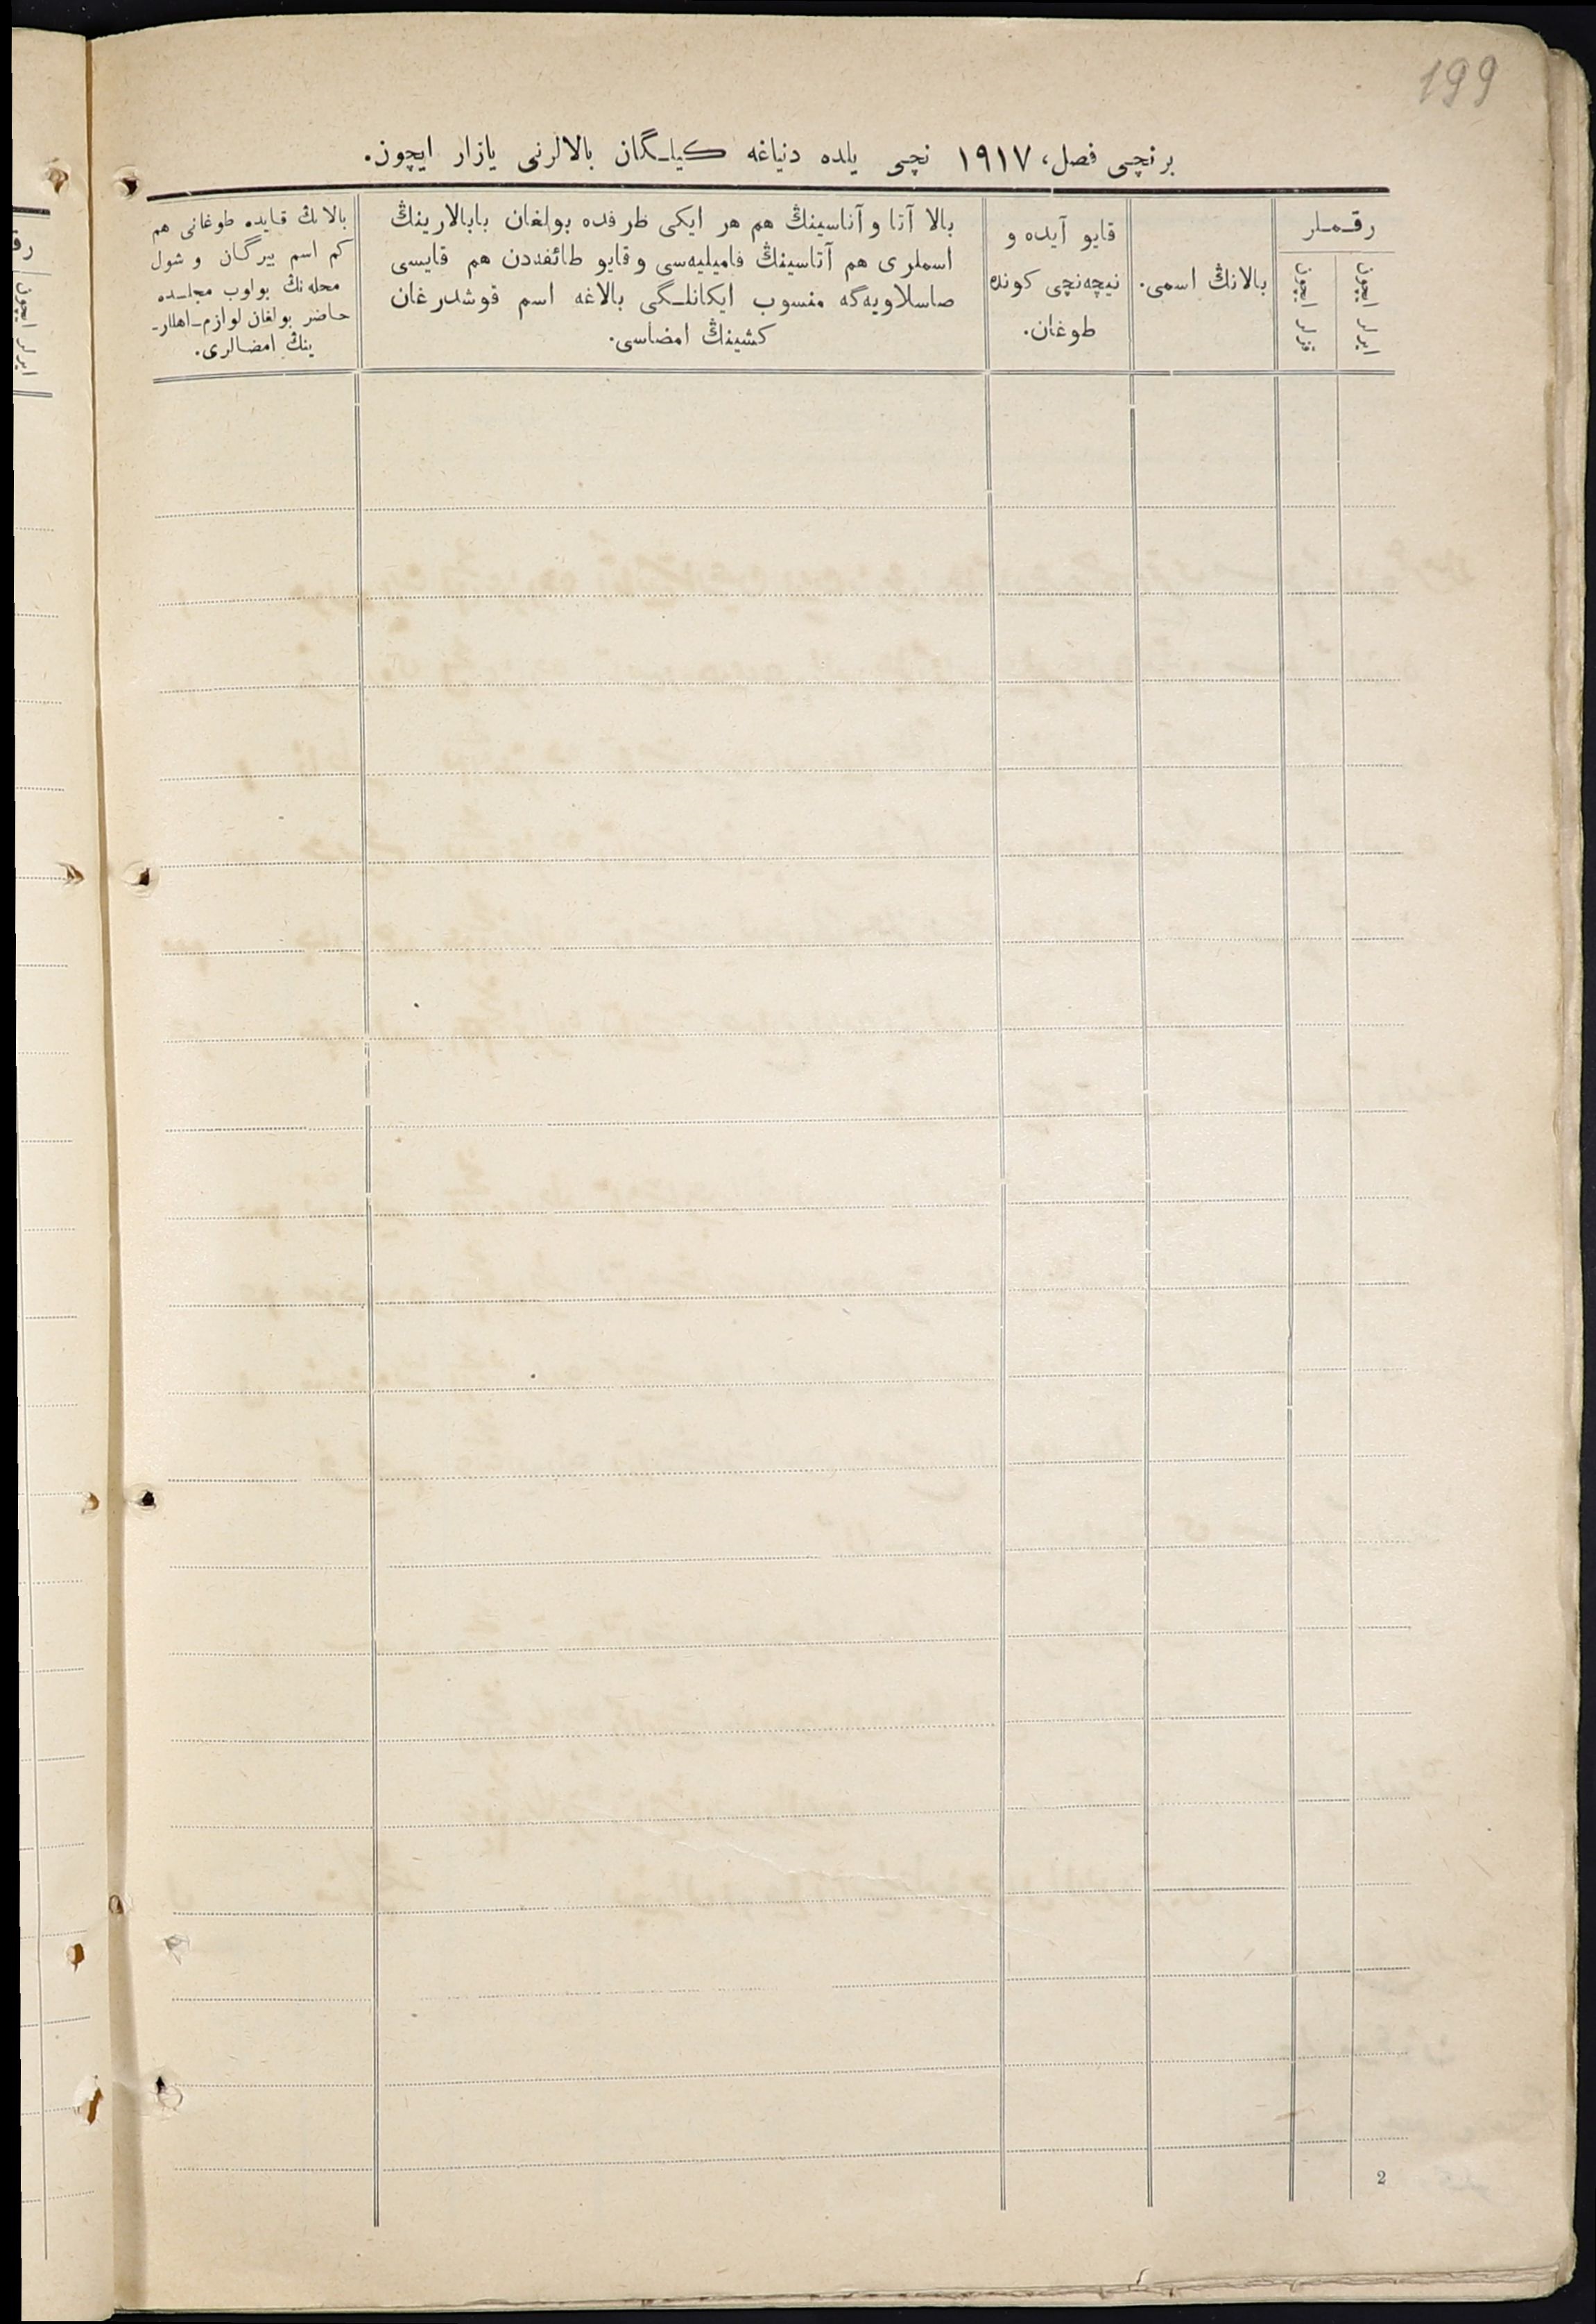 199
برنچی فصل، ١٩١٧ نچی یلده دنیاغه کیلـگان بالالرنی یازار ایچون.
رقـمـلر
ایرلر ایچون
قزلر ایچون
بالانڭ اسمی.
قایو آیده و
نیچەنچی کونده
طوغان.
بالا آتا و آناسینڭ هم هر ایکی طرفده بولغان بابالارینڭ
اسملری هم آتاسینڭ فامیلیەسی و قایو طائفەدن هم قایسی
صاسلاویەگە منسوب ایکانلـگی بالاغه اسم قوشدرغان
کشینڭ امضاسی.
بالانڭ قایده طوغانی هم
کم اسم بیرگان و شول
محلەنڭ بولوب مجلـسده
حاضر بولغان لوازم‌ـاهللرـ
ینڭ امضالری.
2